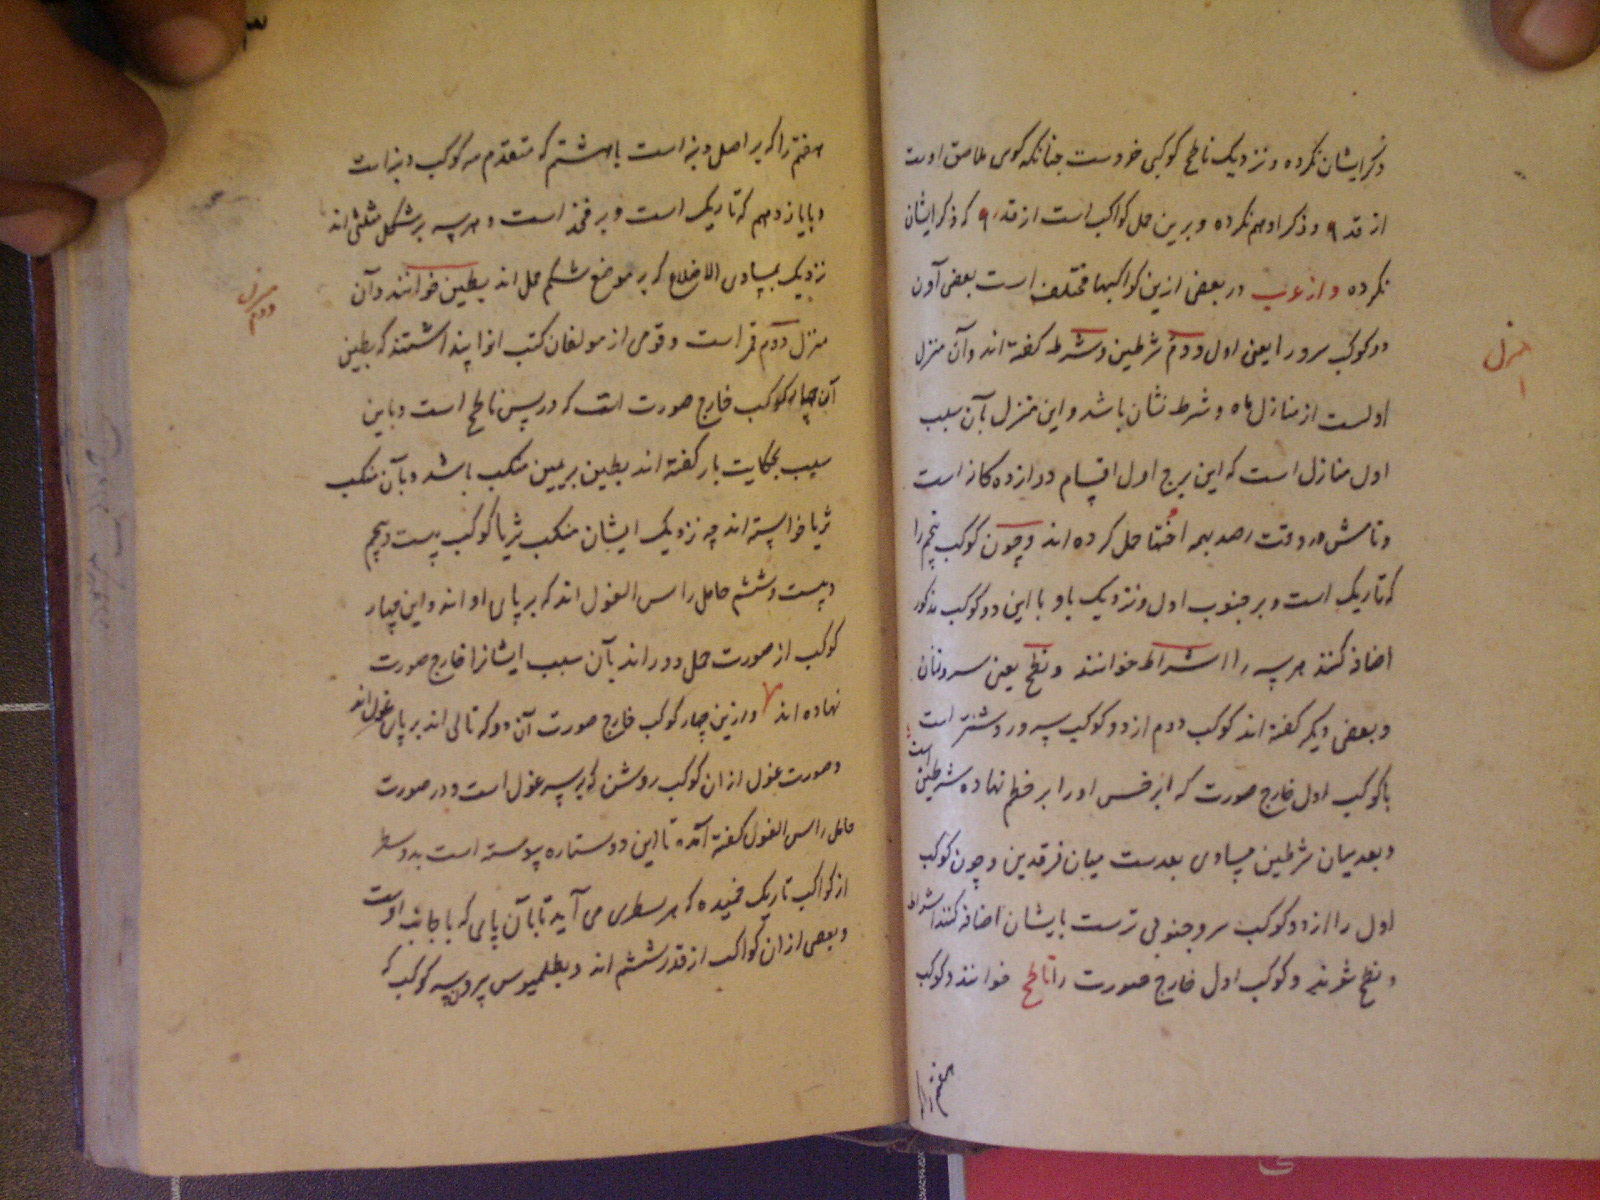 ذکر ایشان نکرده و نزدیک ناطح کوکبی خردست چنانکه کوی ملاصق اوست
از قدر ۹ و ذکر او هم نکرده و برین حمل کواکب است از قدر ۹ که ذکر ایشان
نکرده و از عرب در بعضی ازین کواکبها مختلف است بعضی ازین
دو کوکب سرو را یعنی اول و دوم شرطین و شرطه کفته اند و آن منزل
اولست از منازل ماه و شرط نشان باشد و این منزل بآن سبب
اول منازل است که این برج اول اقسام دوازده کانه است
و نامش در وقت رصد بهم حمل کرده اند و چون کوکب پنجم را
که تاریک است و بر جنوب اول و نزدیک باو با این دو کوکب مذکور
اضافه کنند هر سه را اشراط خوانند و نطح یعنی سرو زنان
و بعضی دیکر کفته اند کوکب دوم از دو کوکب سرو روشنتر است
با کوکب اول خارج صورت که ابرخس او را بر خطم نهاده شرطین است
و بعد میان شرطین مساوی بعدست میان فرقدین و چون کوکب
اول را از دو کوکب سرو جنوبی ترست بایشان اضافه کنند اشراط
و نطح شوند و کوکب اول خارج صورت را ناطح خوانند و کوکب
هفتم را
منزل
۱
هفتم را که بر اصل دنبه است با هشتم که متقدم سه کوکب دنبه است
و با یازدهم که تاریک است و بر فخذ است و هر سه بر شکل مثلثی اند
نزدیک بمساوی الاضلاع که بر موضع شکم حمل اند بطین خوانند و آن
منزل دوم قمر است و قومی از مولفان کتب انوا پنداشتند که بطین
آن چهار کوکب خارج صورت است که در پس ناطح است و باین
سبب بحکایت باز کفته اند بطین بر یمین منکب باشد و بآن منکب
ثریا خواسته اند چه نزدیک ایشان منکب ثریا کوکب بیست و پنجم
و بیست و ششم حامل راس الغول اند که بر پای او اند و این چهار
کوکب از صورت حمل دور اند بآن سبب ایشانرا خارج صورت
نهاده اند و ازین چهار کوکب خارج صورت آن دو که تالی اند بر پای غول اند
و صورت غول از ان کوکب روشن که بر سر غول است و در صورت
حامل راس الغول کفته آمده تا این دو ستاره پیوسته است بدو سطر
از کواکب تاریک خمیده که هر سطری می آید تا بآن پای که با جانب اوست
و بعضی از ان کواکب از قدر ششم اند و بطلمیوس بیرون سه کوکب که
منزل
دوم